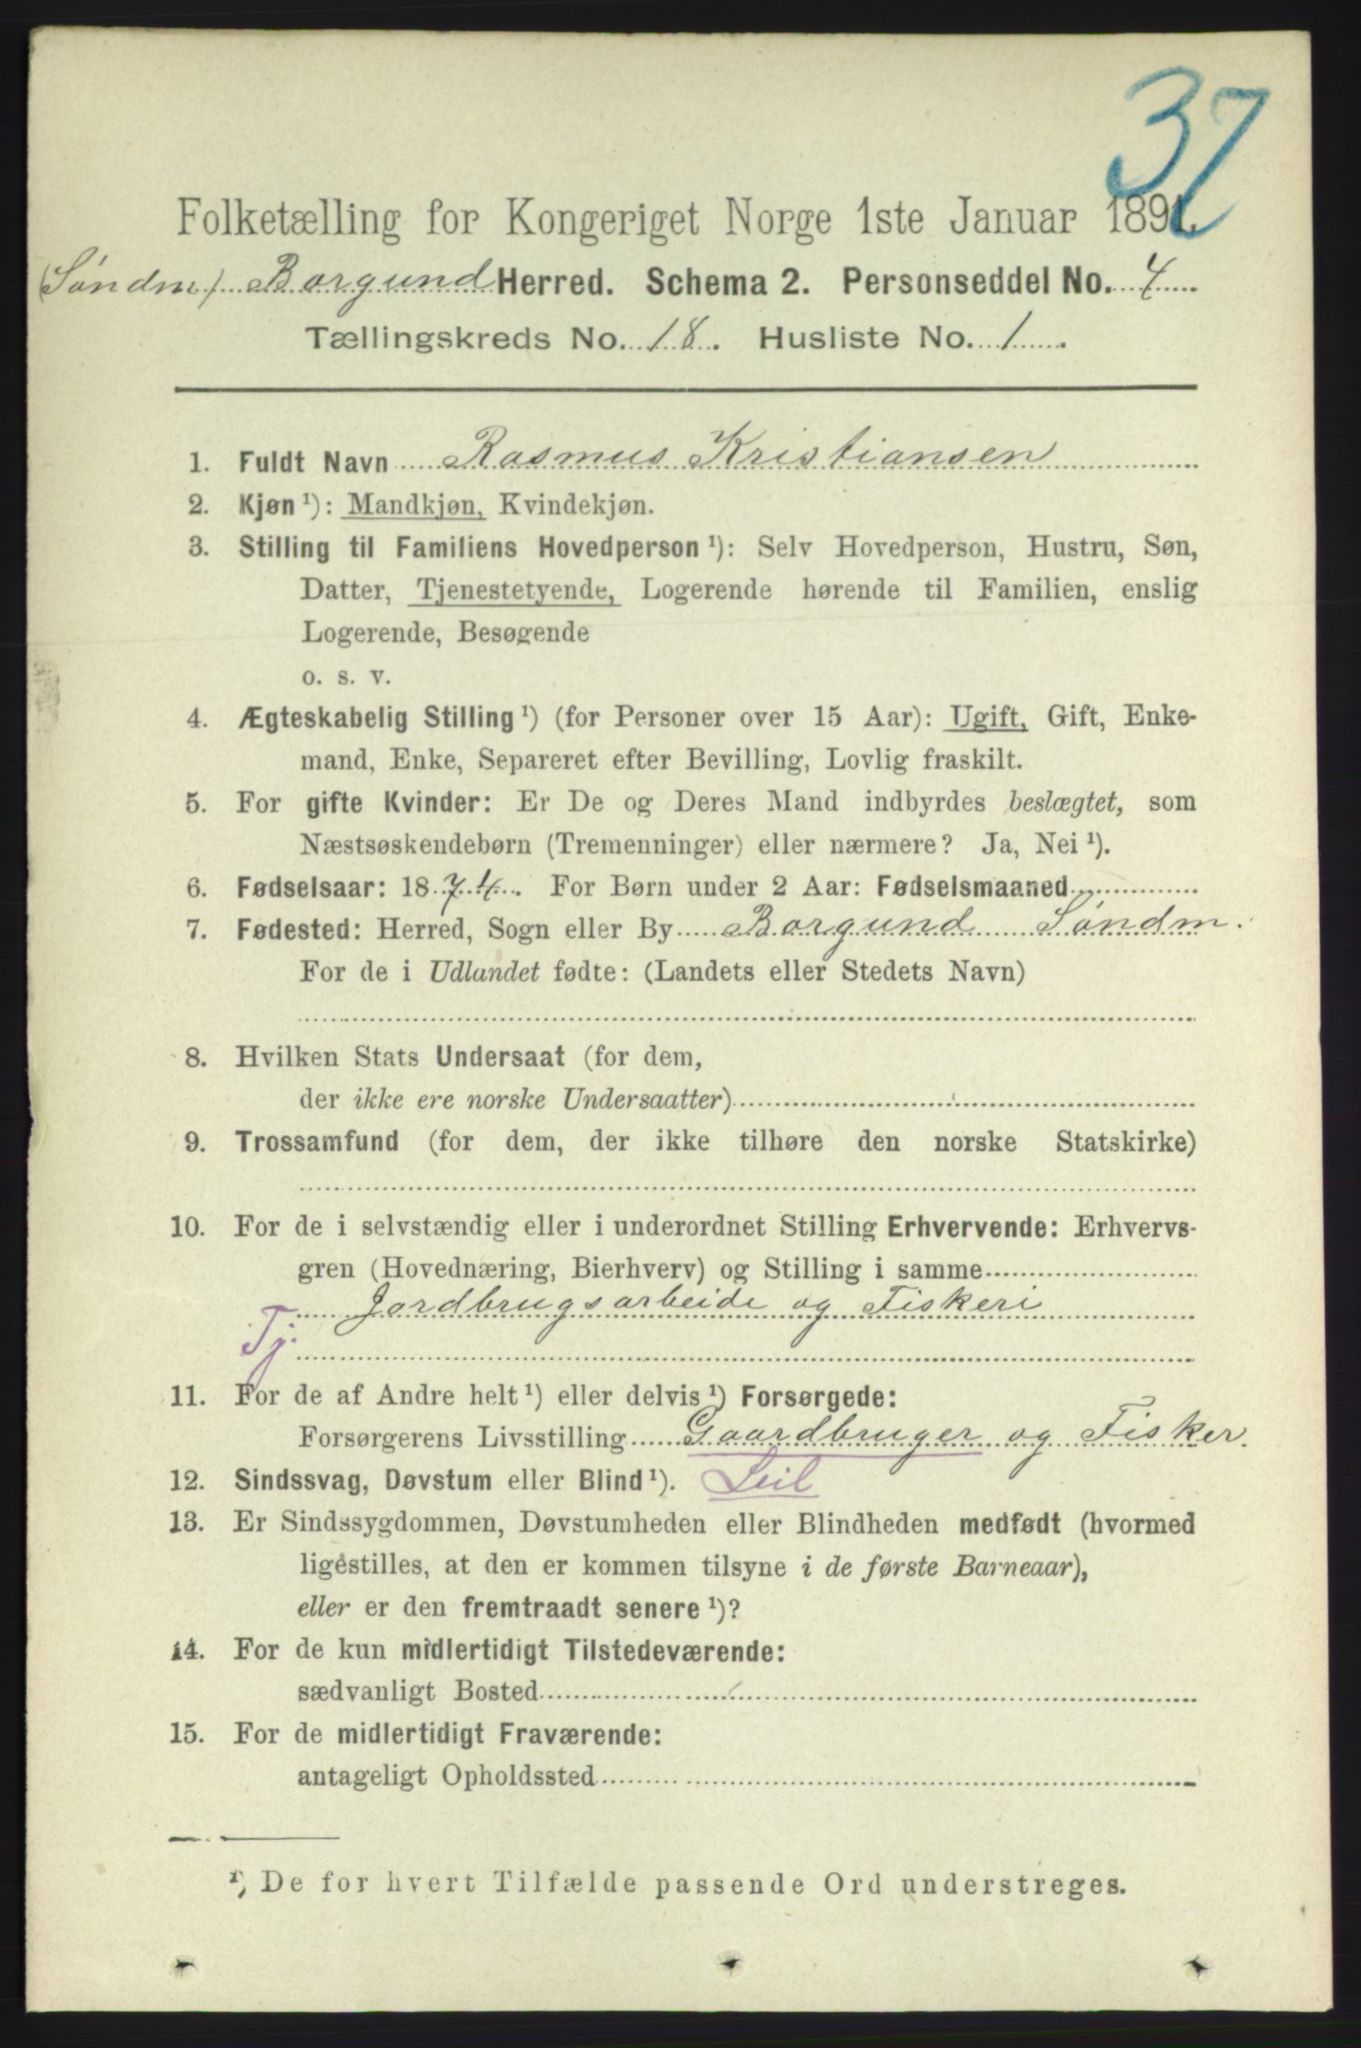 37
Folketælling for Kongeriget Norge 1ste Januar 1891.
(Søndm) Borgund Herred. Schema 2. Personseddel No. 4
Tællingskreds No. 18. Husliste No. 1.
1. Fuldt Navn Rasmus Kristiansen
2. Kjøn ¹): Mandkjøn, Kvindekjøn.
3. Stilling til Familiens Hovedperson ¹): Selv Hovedperson, Hustru, Søn,
Datter, Tjenestetyende, Logerende hørende til Familien, enslig
Logerende, Besøgende
o. s. v.
4. Ægteskabelig Stilling ¹) (for Personer over 15 Aar): Ugift, Gift, Enke-
mand, Enke, Separeret efter Bevilling, Lovlig fraskilt.
5. For gifte Kvinder: Er De og Deres Mand indbyrdes beslægtet, som
Næstsøskendebørn (Tremenninger) eller nærmere? Ja, Nei ¹).
6. Fødselsaar: 1874. For Børn under 2 Aar: Fødselsmaaned
7. Fødested: Herred, Sogn eller By Borgund Søndm.
For de i Udlandet fødte: (Landets eller Stedets Navn)
8. Hvilken Stats Undersaat (for dem,
der ikke ere norske Undersaatter)
9. Trossamfund (for dem, der ikke tilhøre den norske Statskirke)
10. For de i selvstændig eller i underordnet Stilling Erhvervende: Erhvervs-
gren (Hovednæring, Bierhverv) og Stilling i samme
Jordbrugsarbeide og Fiskeri
Tj.
11. For de af Andre helt ¹) eller delvis ¹) Forsørgede:
Forsørgerens Livsstilling Gaardbruger og Fisker.
12. Sindssvag, Døvstum eller Blind ¹). Leil
13. Er Sindssygdommen, Døvstumheden eller Blindheden medfødt (hvormed
ligestilles, at den er kommen tilsyne i de første Barneaar),
eller er den fremtraadt senere ¹)?
14. For de kun midlertidigt Tilstedeværende:
sædvanligt Bosted
15. For de midlertidigt Fraværende:
antageligt Opholdssted
¹) De for hvert Tilfælde passende Ord understreges.